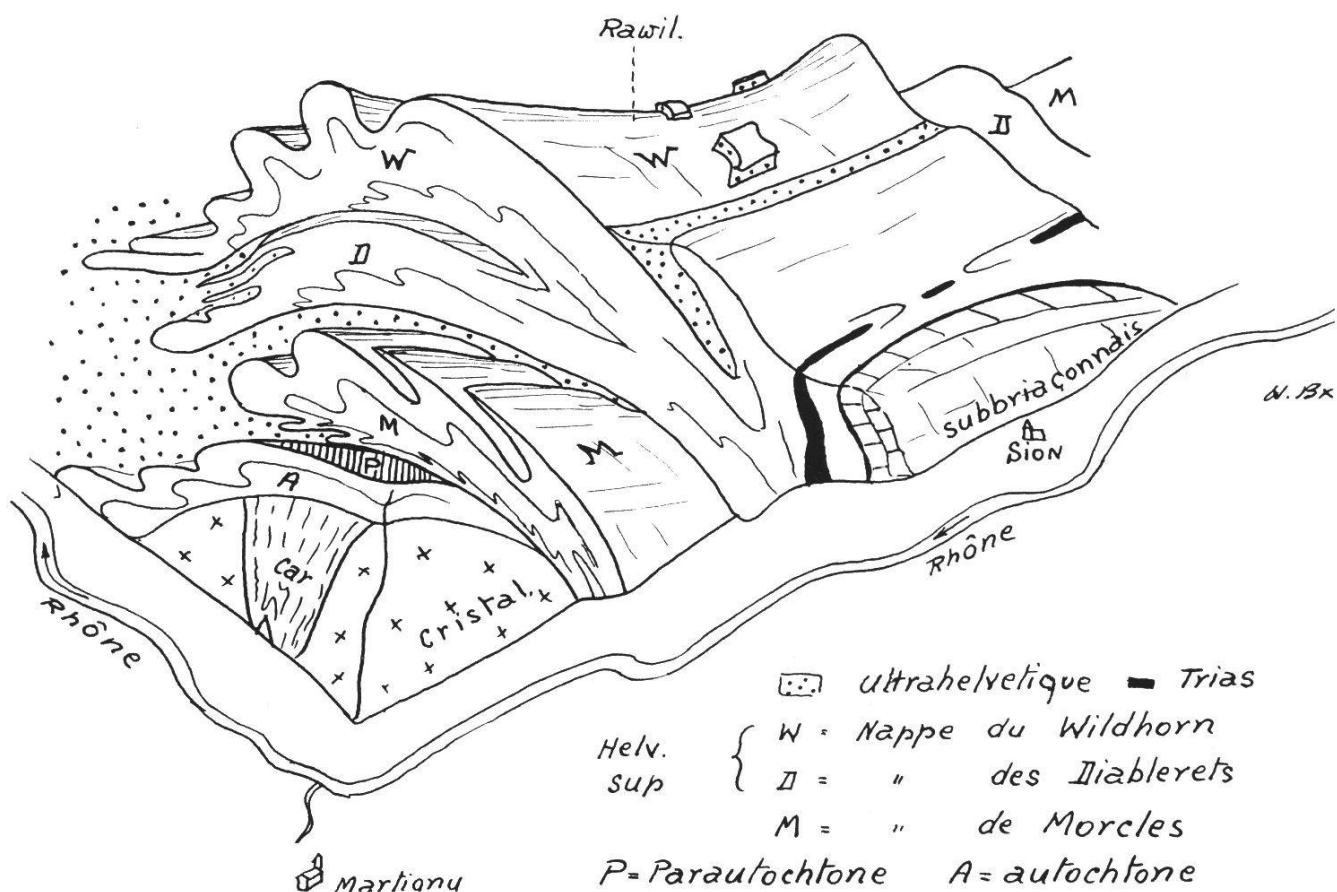 Rawil.
M
D
W
W
D
M
M
P
A
car
cristal.
subbriaçonnais
Sion
W. Bx
Rhône
Rhône
ultrahelvetique Trias
Helv. sup
W = Nappe du Wildhorn
D = " des Diablerets
M = " de Morcles
P = Parautochtone A = autochtone
Martigny